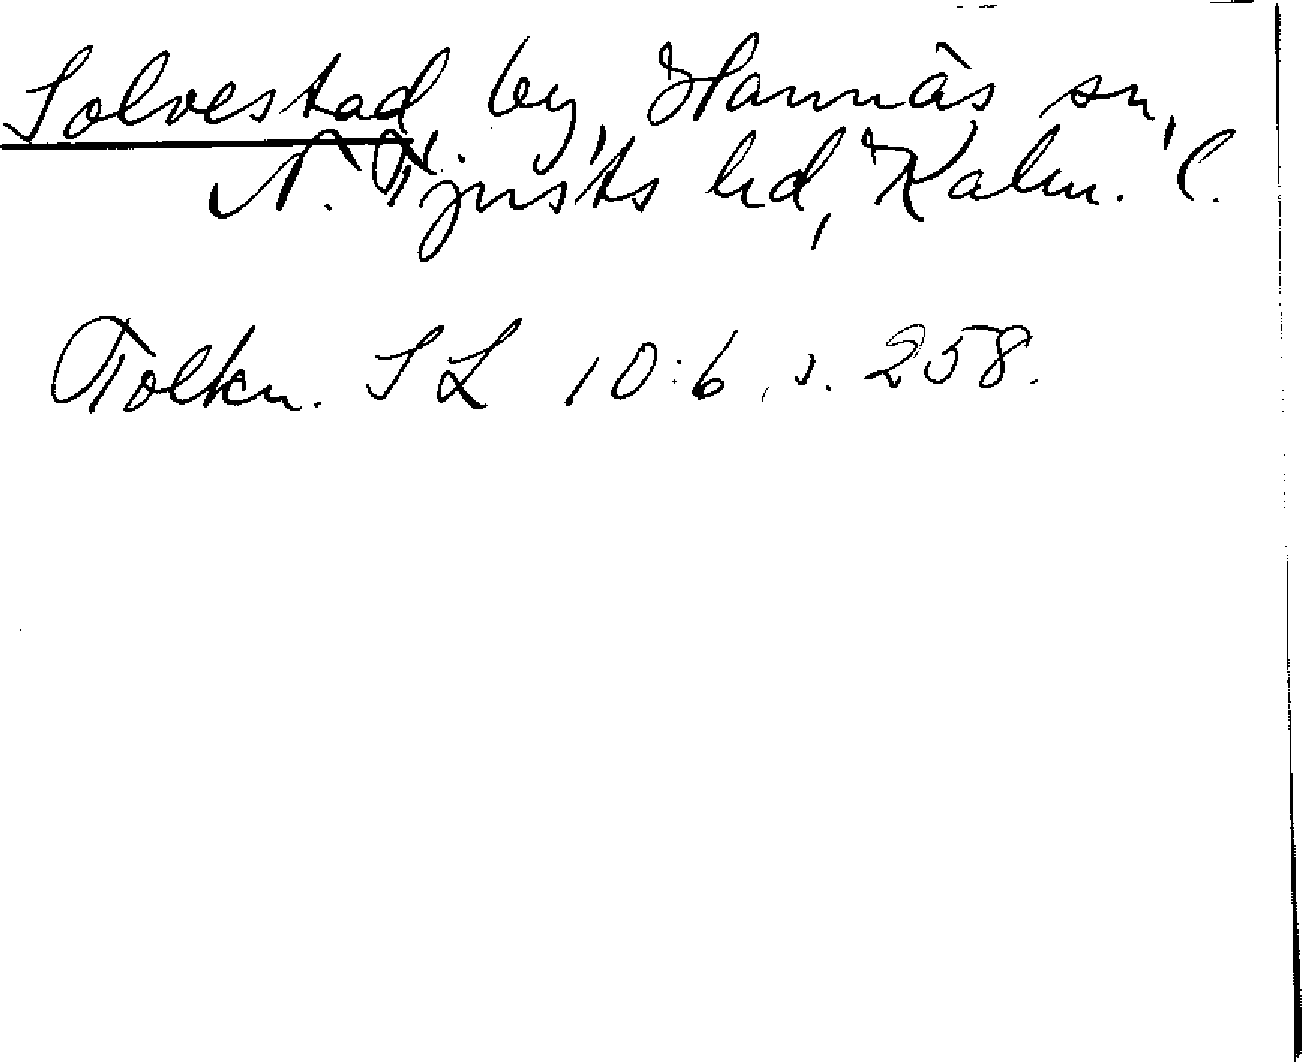 Solvestad, by, Hannäs sn,
N. Tjusts hd, Kalm. l.
Tolkn. SL 10:6, s. 258.